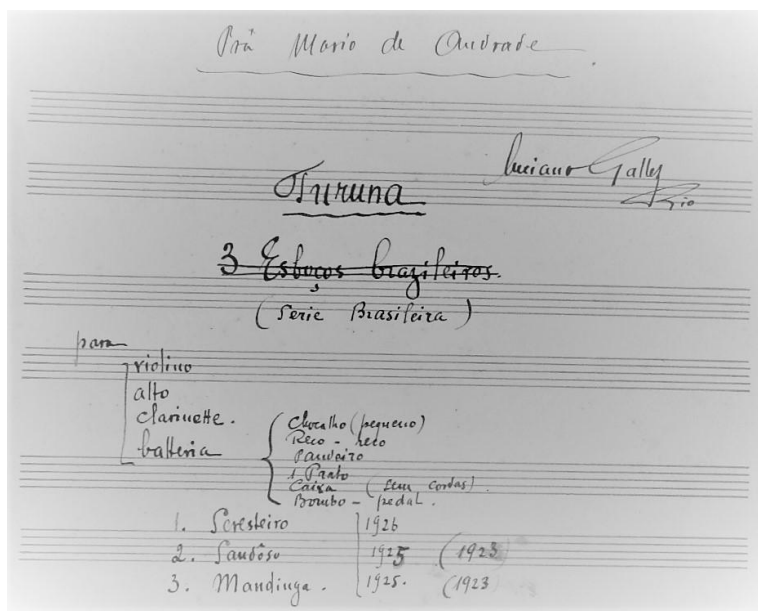 Prá Mario de Andrade.
Luciano Gally
Rio
Turuna
3 Esboços brazileiros.
(Serie Brasileira)
para
violino
alto
clarinette.
batteria
Chocalho (pequeno)
Reco-reco
Pandeiro
1 Prato
Caixa (sem cordas).
Bombo - pedal.
1. Seresteiro 1926
2. Saudôso 1925 (1923
3. Mandinga. 1925. (1923